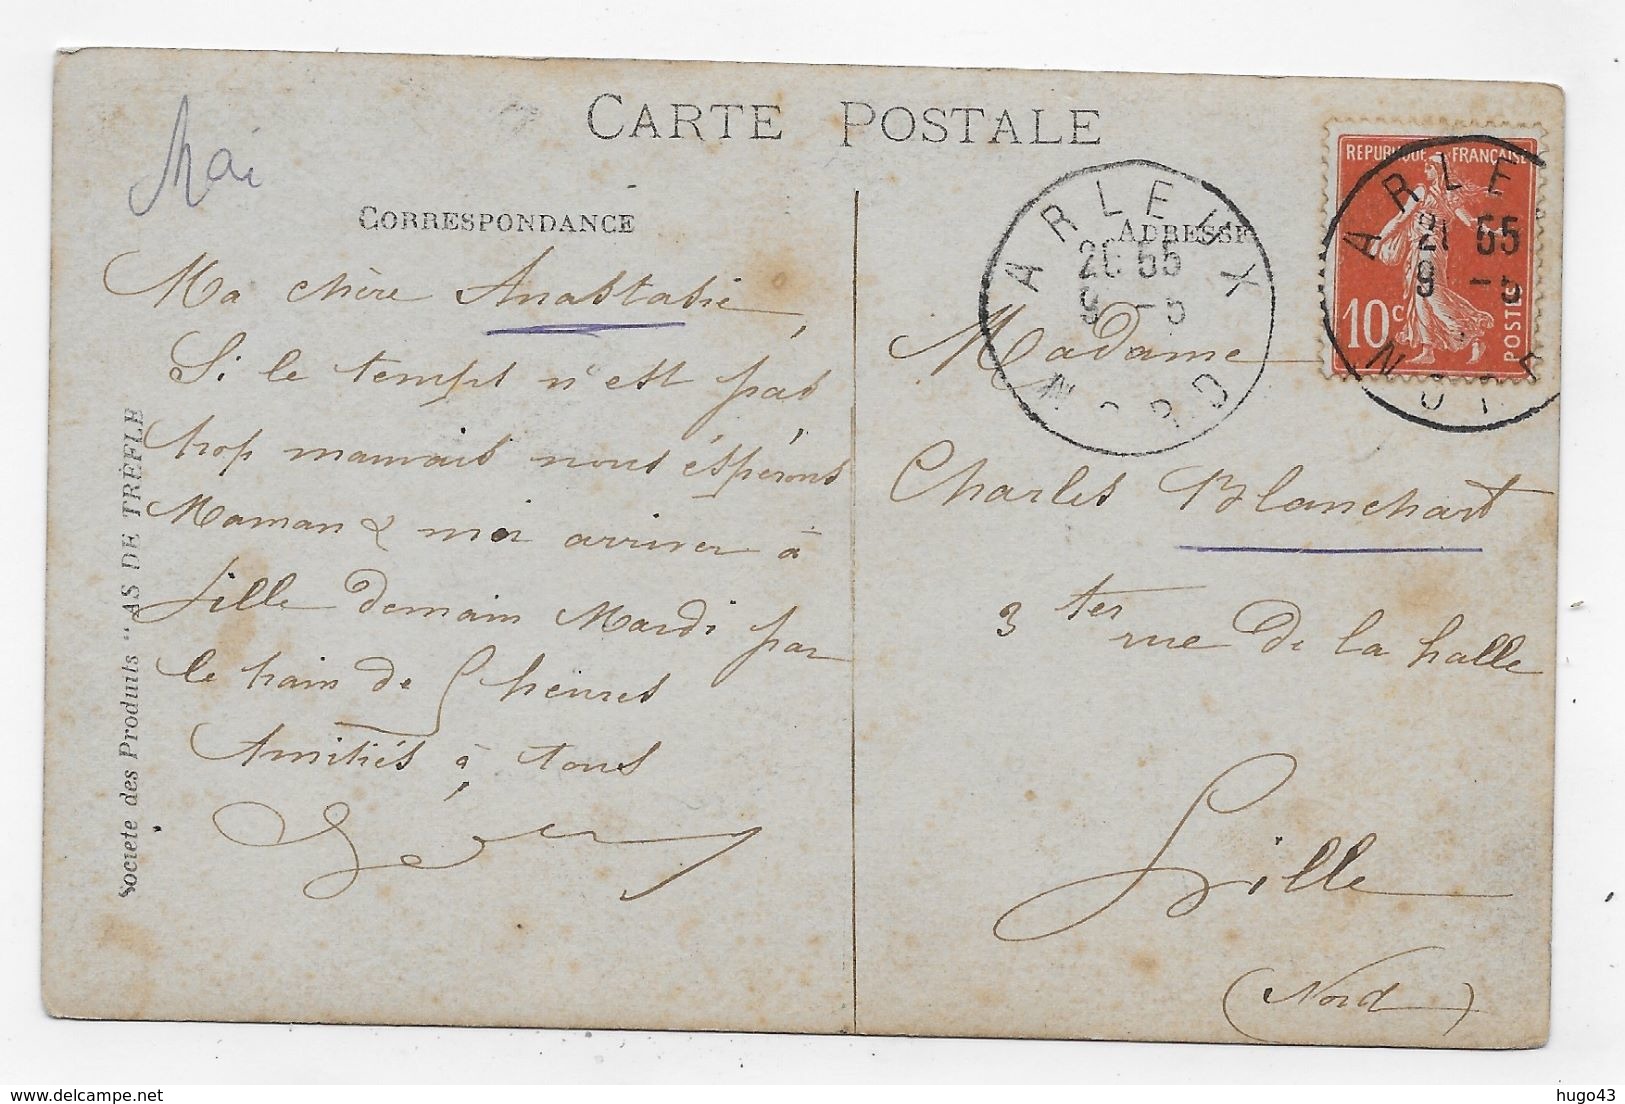 CARTE POSTALE
Mai
CORRESPONDANCE
Ma chère Anastasie,
Si le temps n'est pas
trop mauvais nous éspérons
Maman & moi arriver à
Lille demain Mardi par
le train de 5 heures
Amitiés à tous
Societe des Produits "AS DE TRÈFLE
ADRESSE
Madame
Charles Blanchart
3 ter rue de la halle
Lille
(Nord)
ARLEUX
20 55
9 - 5
NORD
REPUBLIQUE FRANÇAISE
10c
POSTES
ARLE
21 55
9 - 5
NO
delcampe.net
hugo43